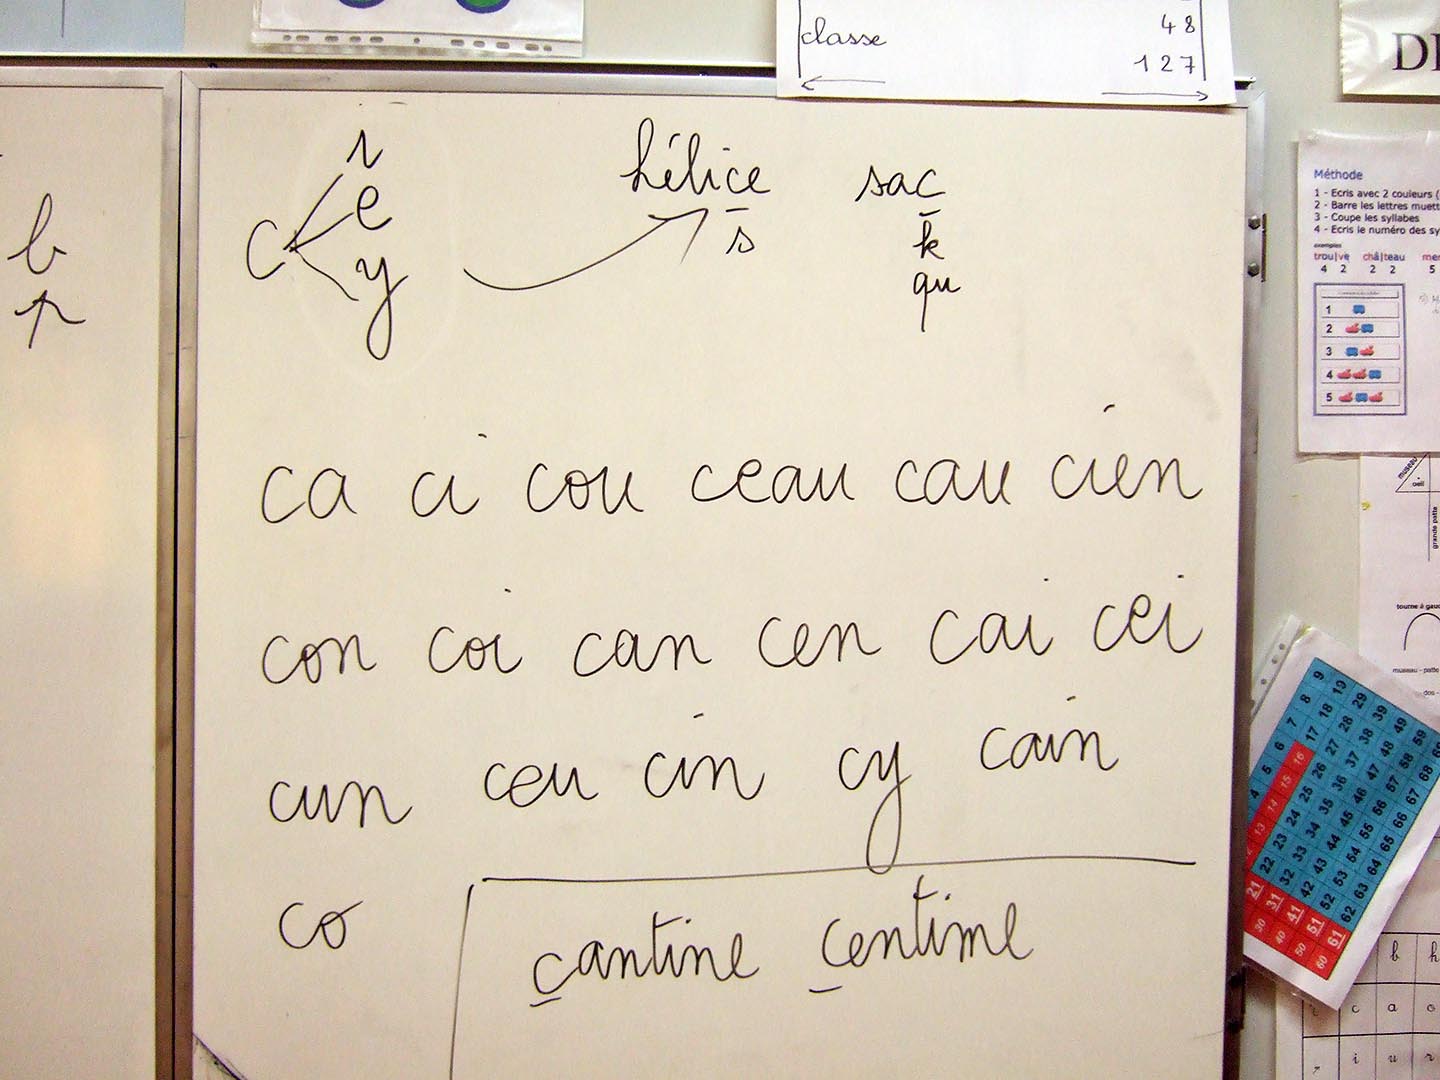 classe 48
127
DI
b
p
i
c e
y
hélice sac
s k
qu
ca ci cou ceau cau cien
con coi can cen cai cei
cun ceu cin cy cain
co
cantine centime
Méthode
1 - Ecris avec 2 couleurs (
2 - Barre les lettres muett
3 - Coupe les syllabes
4 - Ecris le numéro des sy
exemples
trou|ve châ|teau mer
4 2 2 2 5
1
2
3
4
5
museau
oeil
grande patte
tourne à gauc
museau - patte
dos -
9 19 29 39 49 59 69
8 18 28 38 48 58 68
7 17 27 37 47 57 67
6 16 26 36 46 56 66
5 15 25 35 45 55 65
4 14 24 34 44 54 64
13 23 33 43 53 63
22 32 42 52 62
21 31 41 51 61
30 40 50 60
b h
c a o
i u r